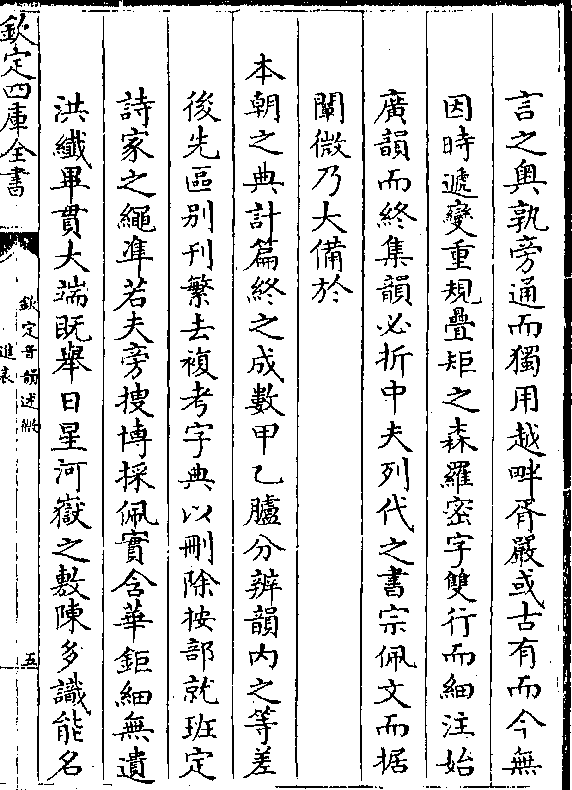 言之奥孰旁通而獨用越畔胥嚴或古有而今無
因時遞變重規疊矩之森羅密字雙行而細注始
廣韻而終集韻必折中夫列代之書宗佩文而据
闡微乃大備於
本朝之典計篇終之成數甲乙臚分辨韻内之等差
後先區别刊繁去複考字典以刪除按部就班定
詩家之繩準若夫旁搜博採佩實含華鉅細無遺
洪纖畢貫大端既舉日星河嶽之敷陳多識能名
欽定四庫全書
欽定音韻述微
進表
五